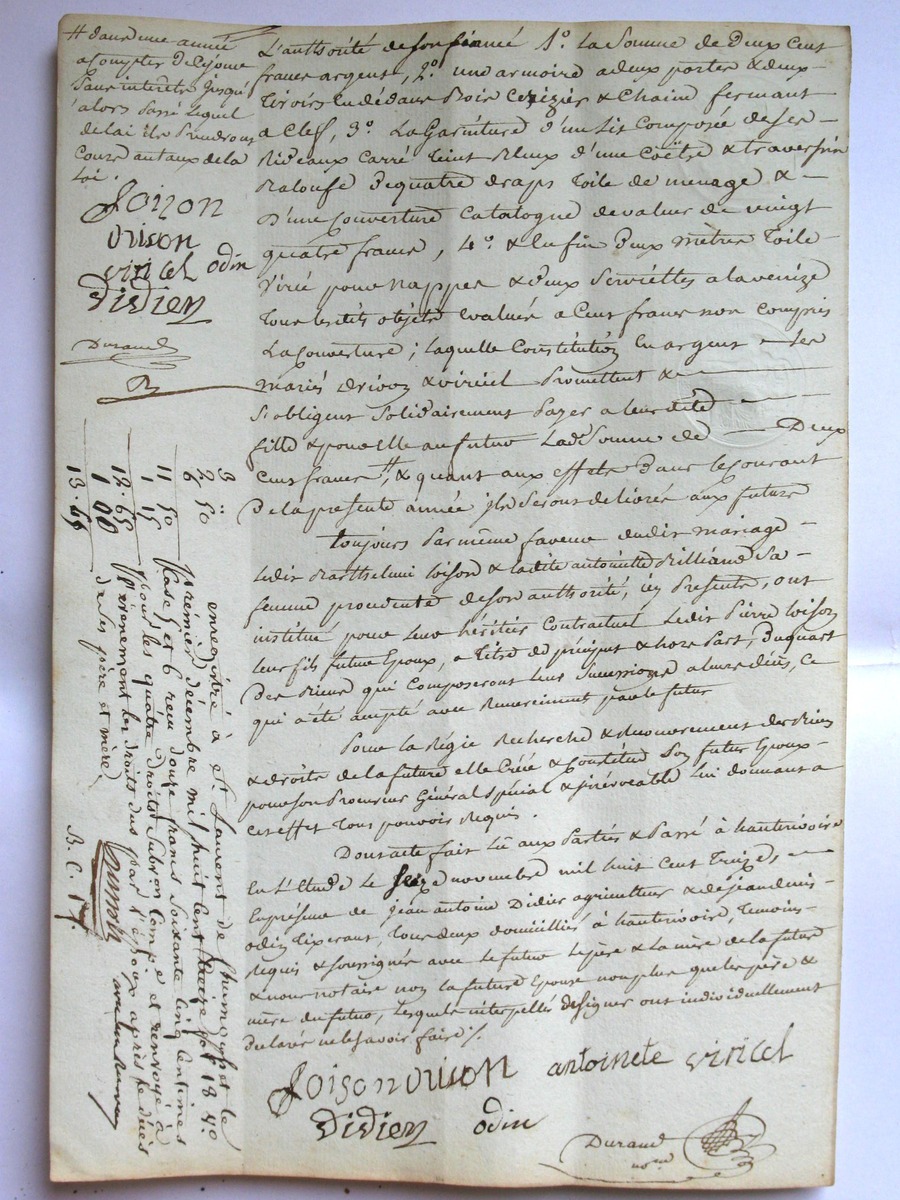 # dans une année
a compter de ce jour
sans interetz jusqu'
alors passé lequel
delai ils prendrons
cours au taux de la
loi.
Loizon
vrison
viricel odin
didier
Durand
L'authorité de son fiancé 1º. La Somme de Deux Cent
francs argent, 2º. une armoire a deux portes & deux
tiroirs en dédans Bois Cerizier & Chaine fermant
a Clef, 3º. La Garniture d'un Lit Composée de ses
Rideaux carré teint Bleux d'une Coëtre & traversin
Balouse De quatre draps toile de menage &
D'une Couverture Catalogne de valeur de vingt
quatre francs, 4º. & Enfin Deux metres toile
pour nappes & Deux Serviettes a la venize
tous lesdits objets Evalués a Cent francs non compris
La Couverture; laquelle Constitution En argent Les
mariés & viricel Promettent &
S'obligent Solidairement Payer a leur dite
fille & pour elle au futur Lad. Somme de Deux
Cens francs #, & quant aux effets Dans le Courant
De la presente année ils Seront délivrés aux futurs
Toujours Par même faveur dudit mariage
Ledit Barthelemi Loison & ladite antoinette Rilliand Sa
femme procedente de son authorité, icy Presente, ont
institué pour leur héritier Contractuel Ledit Pierre Loison
leur fils futur Epoux, a titre de préciput & hors Part, Du quart
Des Biens qui Composeront leur Succession a leurs décès, Ce
qui a été accepté avec Remerciment par le futur
Pour la Régie Recherche & Recouvrement des Biens
& droits de la future elle Créé & Constitué Son futur Epoux
pour son Procureur Général Spécial & irrévocable Lui donnant a
Cet effet tous pouvoirs Requis.
Dont acte fait Lû aux Parties & Passé à hauterivoire
En L'Etude Le Seize novembre mil huit Cent Treize
En présence de jean antoine Didier agriculteur & de jean denis
odin tixerant, tous deux domiciliés à hauterivoire, temoins
Requis & soussignés avec le futur le père & la mère de la future
& nous notaire non la future Epouse non plus que les père &
mère du futur, Lesquels interpellés de signer ont individuellement
Déclaré ne le savoir faire /.
Loison vrison antoinete viricel
didier odin
Durand
nore
3 "
2 50
6
11 50
1 15
12. 65
1 00
13. 65
enregistré à st. Laurent de Chamousset le
premier décembre mil huit cent treize fol 18 vº.
Case 5 et 6 reçu douze francs soixante cinq centimes
pour les quatre droits subvon. compe. et renvoyé à
l'évènement les droits dus par l'époux après le décès
de ses père et mère.
B. C. 17